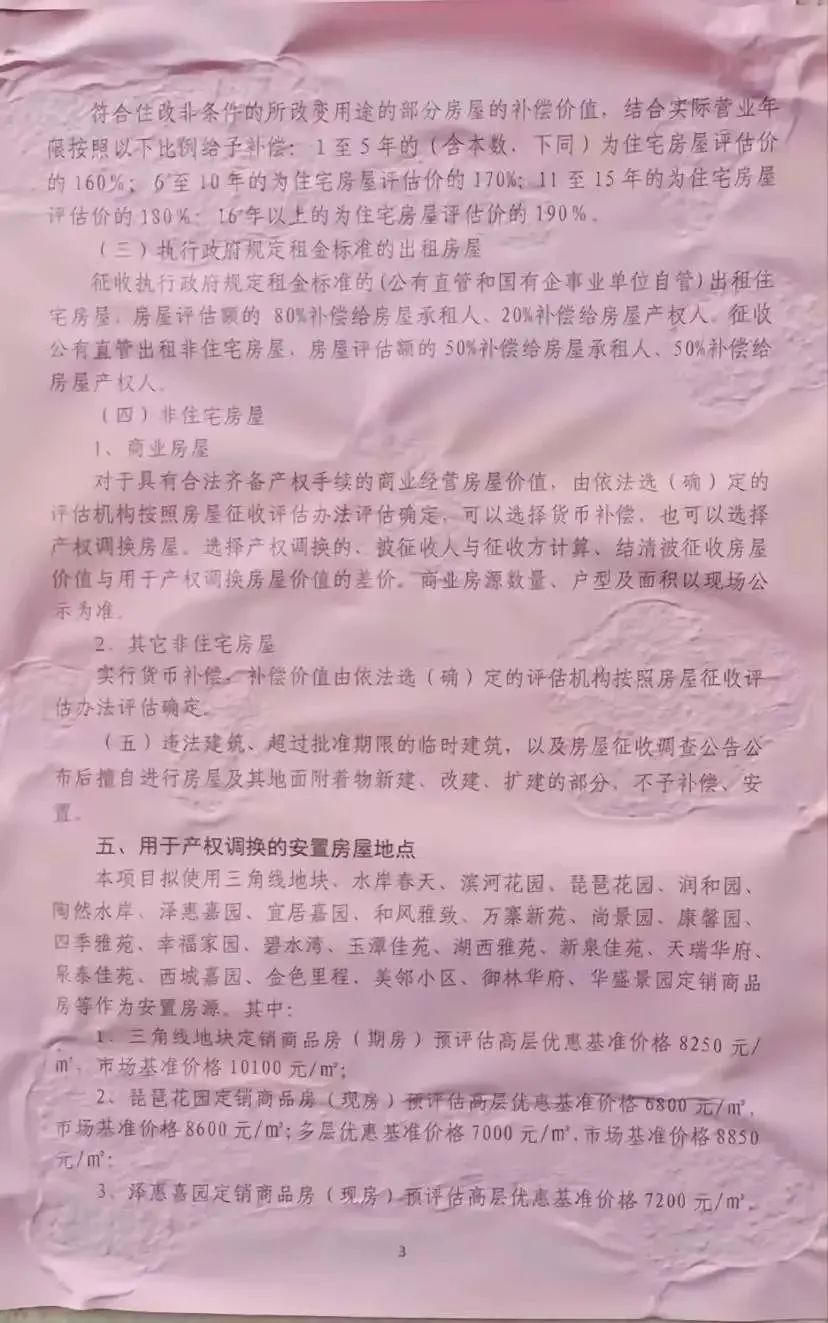 符合住改非条件的所改变用途的部分房屋的补偿价值，结合实际营业年
限按照以下比例给予补偿：1至5年的（含本数，下同）为住宅房屋评估价
的160%；6至10年的为住宅房屋评估价的170%；11至15年的为住宅房屋
评估价的180%；16年以上的为住宅房屋评估价的190%。
（三）执行政府规定租金标准的出租房屋
征收执行政府规定租金标准的(公有直管和国有企事业单位自管)出租住
宅房屋，房屋评估额的 80%补偿给房屋承租人、20%补偿给房屋产权人。征收
公有直管出租非住宅房屋，房屋评估额的50%补偿给房屋承租人、50%补偿给
房屋产权人。
（四）非住宅房屋
1、商业房屋
对于具有合法齐备产权手续的商业经营房屋价值，由依法选（确）定的
评估机构按照房屋征收评估办法评估确定，可以选择货币补偿，也可以选择
产权调换房屋。选择产权调换的、被征收人与征收方计算、结清被征收房屋
价值与用于产权调换房屋价值的差价。商业房源数量、户型及面积以现场公
示为准。
2．其它非住宅房屋
实行货币补偿，补偿价值由依法选（确）定的评估机构按照房屋征收评
估办法评估确定。
（五）违法建筑、超过批准期限的临时建筑，以及房屋征收调查公告公
布后擅自进行房屋及其地面附着物新建、改建、扩建的部分，不予补偿、安
置。
五、用于产权调换的安置房屋地点
本项目拟使用三角线地块、水岸春天、滨河花园、琵琶花园、润和园、
陶然水岸、泽惠嘉园、宜居嘉园、和风雅致、万寨新苑、尚景园、康馨园、
四季雅苑、幸福家园、碧水湾、玉潭佳苑、湖西雅苑、新泉佳苑、天瑞华府、
泉泰佳苑、西城嘉园、金色里程、美邻小区、御林华府、华盛景园定销商品
房等作为安置房源。其中：
1．三角线地块定销商品房（期房）预评估高层优惠基准价格8250元/
㎡，市场基准价格10100元/㎡；
2、琵琶花园定销商品房（现房）预评估高层优惠基准价格6800元/㎡，
市场基准价格8600元/㎡；多层优惠基准价格7000元/㎡，市场基准价格8850
元/㎡；
3、泽惠嘉园定销商品房（现房）预评估高层优惠基准价格7200元/㎡，
3